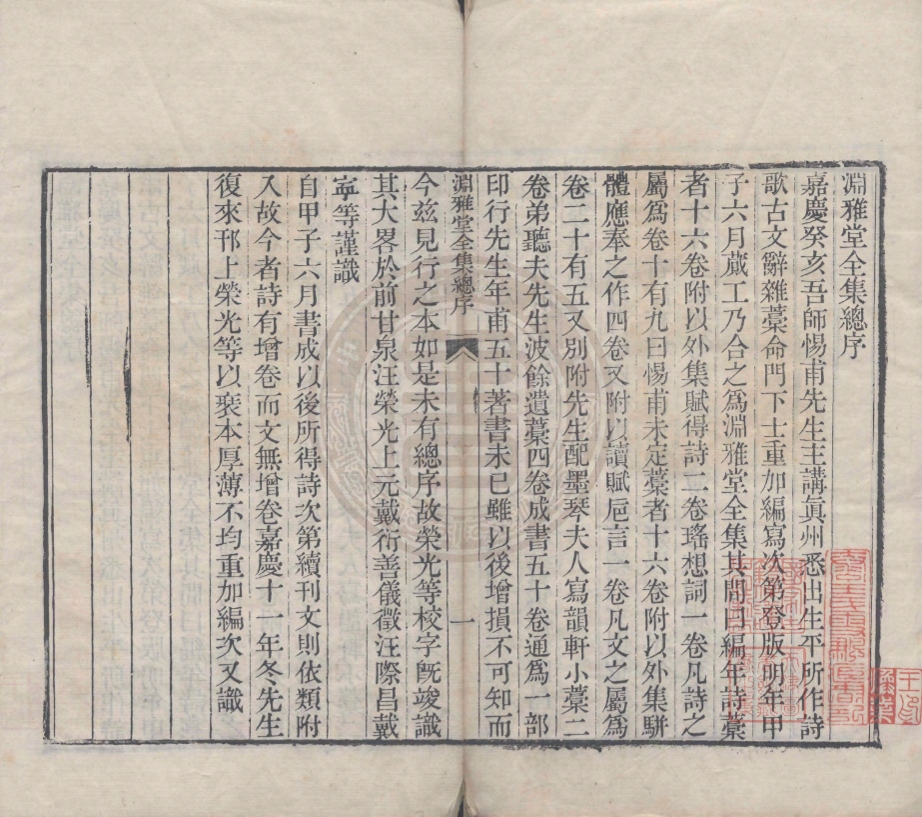 淵雅堂全集總序
嘉慶癸亥吾師惕甫先生主講眞州悉出生平所作詩
歌古文辭雜藁命門下士重加編寫次第登版明年甲
子六月蕆工乃合之爲淵雅堂全集其間曰編年詩藁
者十六卷附以外集賦得詩二卷瑤想詞一卷凡詩之
屬爲卷十有九曰惕甫未定藁者十六卷附以外集駢
體應奉之作四卷又附以讀賦巵言一卷凡文之屬爲
卷二十有五又別附先生配墨琴夫人寫韻軒小藁二
卷弟聽夫先生波餘遺藁四卷成書五十卷通爲一部
印行先生年甫五十著書未已雖以後增損不可知而
淵雅堂全集總序
一
今茲見行之本如是未有總序故榮光等校字旣竣識
其大畧於前甘泉汪榮光上元戴衍善儀徵汪際昌戴
寧等謹識
自甲子六月書成以後所得詩次第續刊文則依類附
入故今者詩有增卷而文無增卷嘉慶十一年冬先生
復來邗上榮光等以裒本厚薄不均重加編次又識